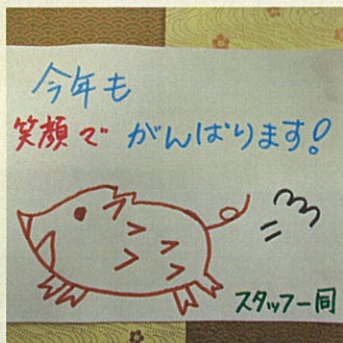 今年も
笑顔で がんばります!
スタッフ一同